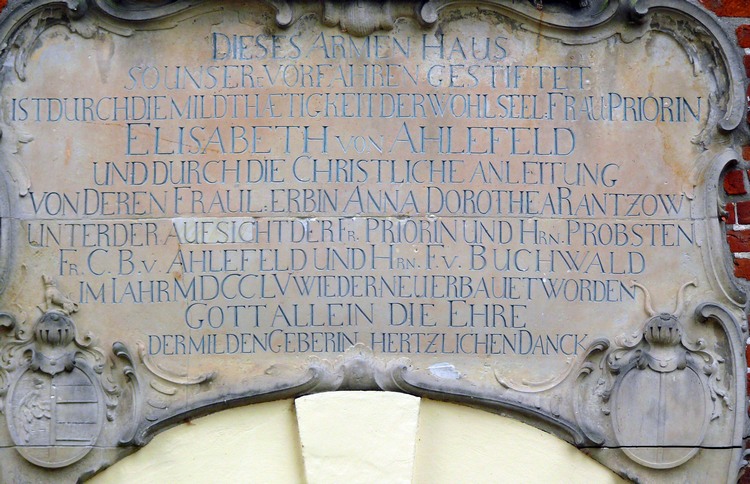 DIESES ARMEN HAUS
SO UNSERE VORFAHREN GESTIFTET
IST DURCH DIE MILDTHÆTIGKEIT DER WOHLSEEL. FRAU PRIORIN
ELISABETH VON AHLEFELD
UND DURCH DIE CHRISTLICHE ANLEITUNG
VON DEREN FRAUL. ERBIN ANNA DOROTHEA RANTZOW
UNTER DER AUFSICHT DER FR. PRIORIN UND HRN. PROBSTEN
FR. C. B. V. AHLEFELD UND HRN. F. V. BUCHWALD
IM IAHR MDCCLV WIEDER NEU ERBAUET WORDEN
GOTT ALLEIN DIE EHRE
DER MILDEN GEBERIN HERTZLICHEN DANCK